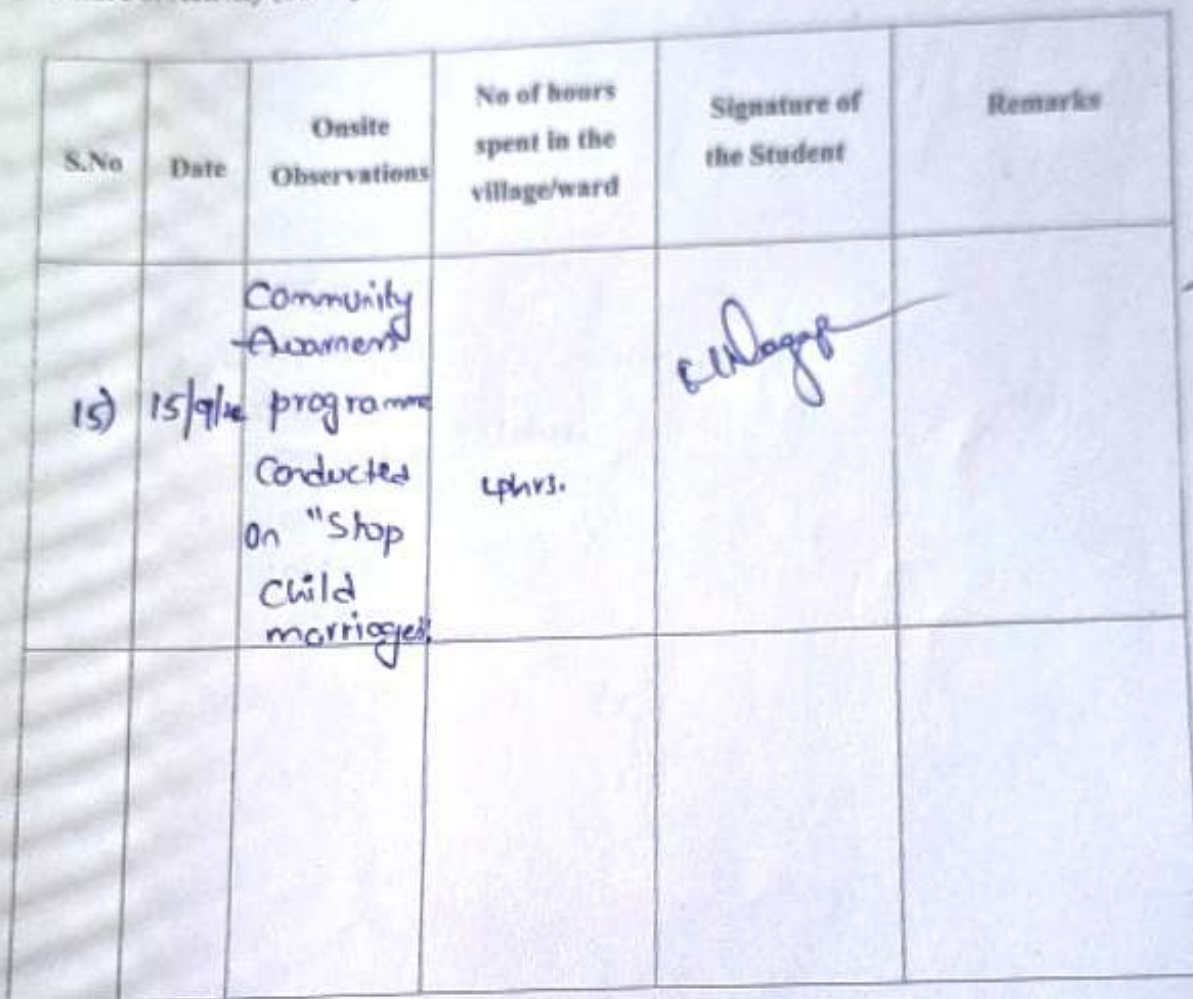 S.No
Date
Onsite
Observations
No of hours
spent in the
village/ward
Signature of
the Student
Remarks
15)
Community
programme
Conducted
On "Stop
Child
marriages".
4hrs.